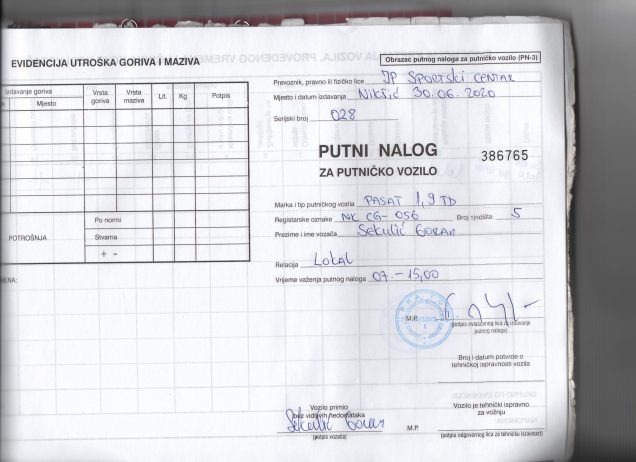 EVIDENCIJA UTROŠKA GORIVA I MAZIVA
Izdavanje goriva
Mjesto
Vrsta goriva
Vrsta maziva
Lit.
Kg.
Potpis
POTROŠNJA
Po normi
Stvarna
+ -
Obrazac putnog naloga za putničko vozilo (PN-3)
Prevoznik, pravno ili fizičko lice JP SPORTSKI CENTAR
Mjesto i datum izdavanja Nikšić 30.06.2020
Serijski broj 028
PUTNI NALOG
386765
ZA PUTNIČKO VOZILO
Marka i tip putničkog vozila PASAT 1,9 TD
Registarske oznake NK CG-056 Broj sjedišta 5
Prezime i ime vozača Sekulić Goran
Relacija Lokal
Vrijeme važenja putnog naloga 07-15,00
M.P.
(potpis ovlašćenog lica za izdavanje
putnog naloga)
Broj i datum potvrde o
tehničkoj ispravnosti vozila
Vozilo primio
bez vidljivih nedostataka
Sekulić Goran
(potpis vozača)
Vozilo je tehnički ispravno
za vožnju
M.P.
(potpis odgovornog lica za tehničku ispravnost)